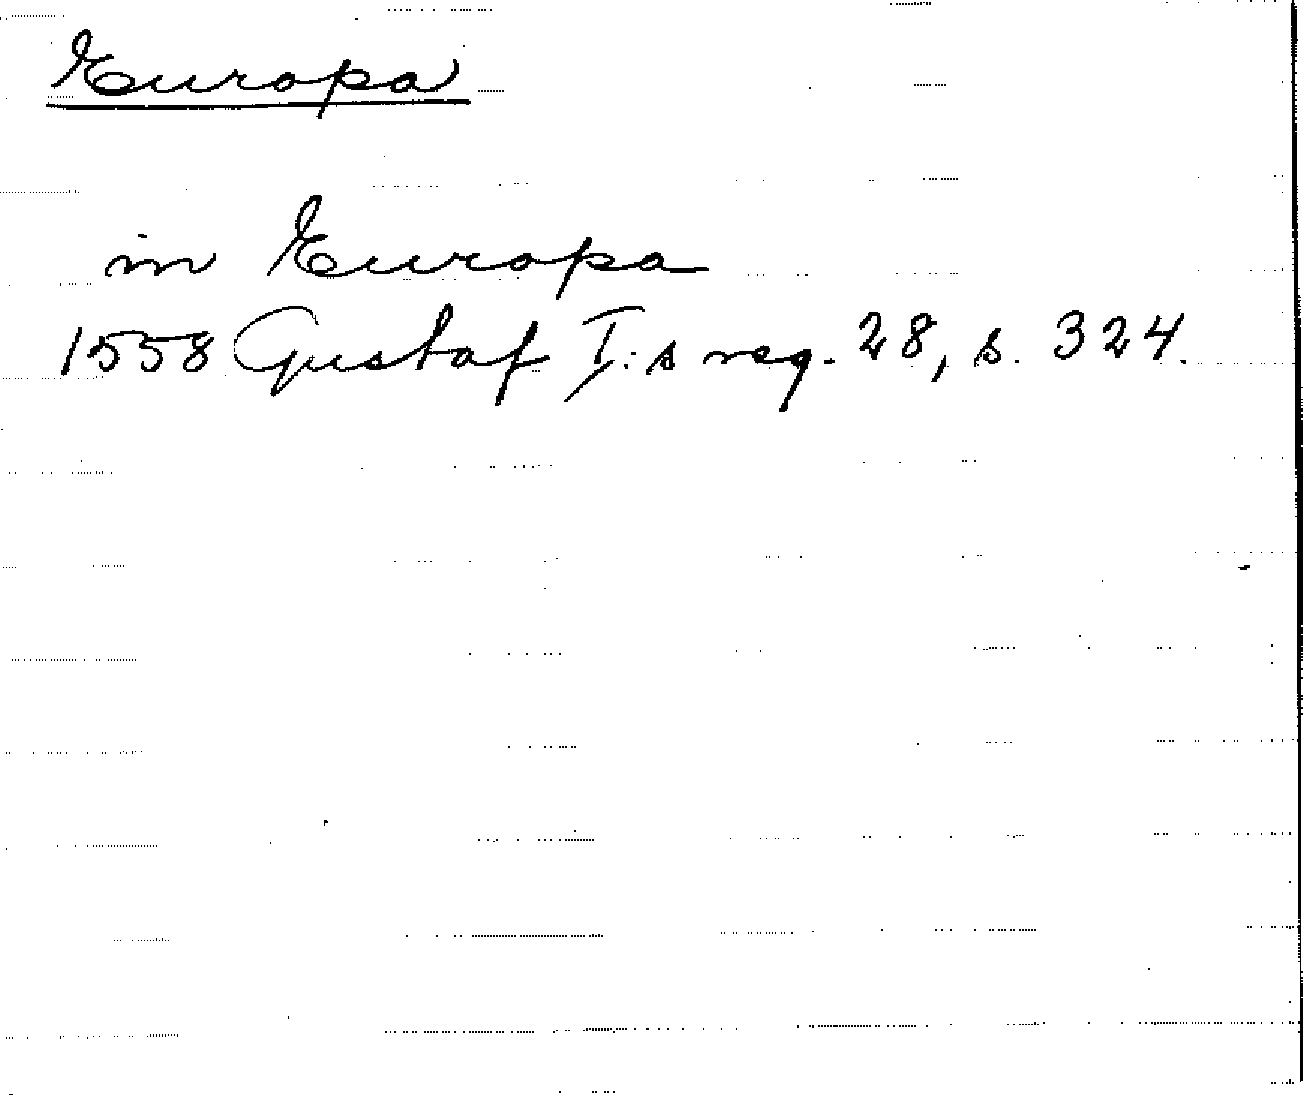 Europa
in Europa
1558 Gustaf I:s reg. 28, s. 324.